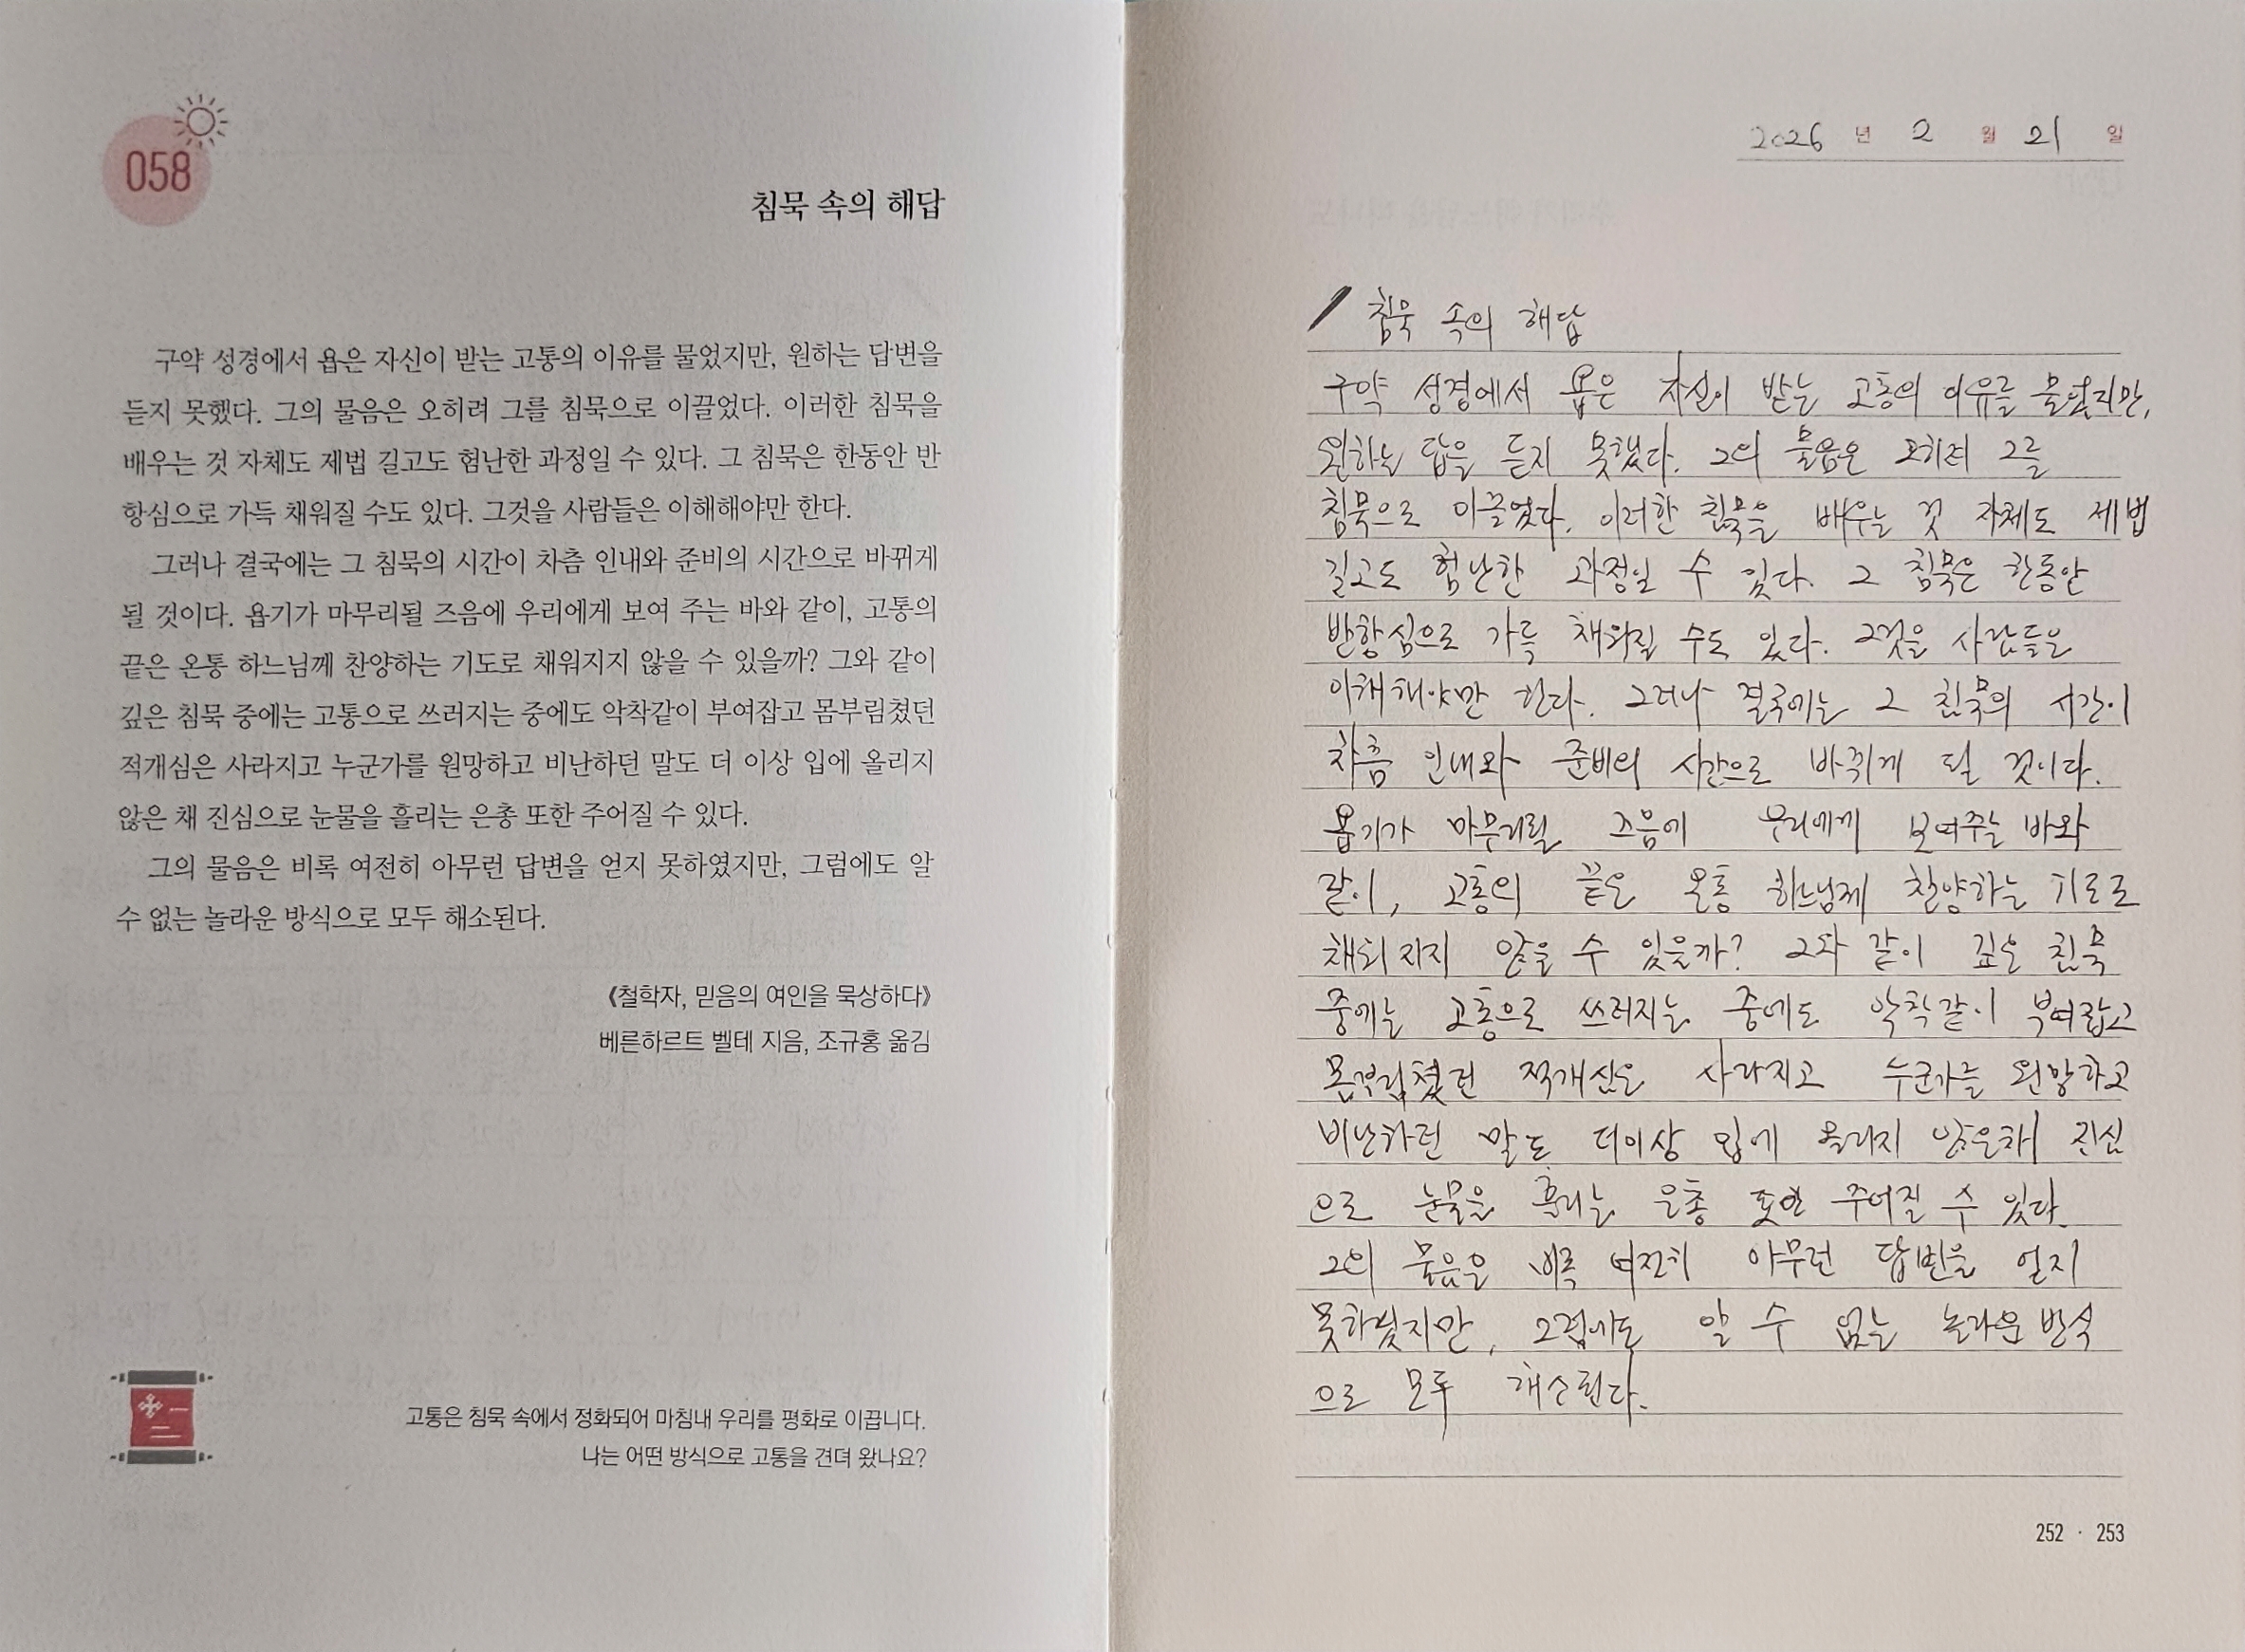 058
침묵 속의 해답
구약 성경에서 욥은 자신이 받는 고통의 이유를 물었지만, 원하는 답변을
듣지 못했다. 그의 물음은 오히려 그를 침묵으로 이끌었다. 이러한 침묵을
배우는 것 자체도 제법 길고도 험난한 과정일 수 있다. 그 침묵은 한동안 반
항심으로 가득 채워질 수도 있다. 그것을 사람들은 이해해야만 한다.
그러나 결국에는 그 침묵의 시간이 차츰 인내와 준비의 시간으로 바뀌게
될 것이다. 욥기가 마무리될 즈음에 우리에게 보여 주는 바와 같이, 고통의
끝은 온통 하느님께 찬양하는 기도로 채워지지 않을 수 있을까? 그와 같이
깊은 침묵 중에는 고통으로 쓰러지는 중에도 악착같이 부여잡고 몸부림쳤던
적개심은 사라지고 누군가를 원망하고 비난하던 말도 더 이상 입에 올리지
않은 채 진심으로 눈물을 흘리는 은총 또한 주어질 수 있다.
그의 물음은 비록 여전히 아무런 답변을 얻지 못하였지만, 그럼에도 알
수 없는 놀라운 방식으로 모두 해소된다.
《철학자, 믿음의 여인을 묵상하다》
베른하르트 벨테 지음, 조규홍 옮김
고통은 침묵 속에서 정화되어 마침내 우리를 평화로 이끕니다.
나는 어떤 방식으로 고통을 견뎌 왔나요?
2026 년 2 월 21 일
침묵 속의 해답
구약 성경에서 욥은 자신이 받는 고통의 이유를 물었지만,
원하는 답을 듣지 못했다. 그의 물음은 오히려 그를
침묵으로 이끌었다. 이러한 침묵을 배우는 것 자체도 제법
길고도 험난한 과정일 수 있다. 그 침묵은 한동안
반항심으로 가득 채워질 수도 있다. 그것을 사람들은
이해해야만 한다. 그러나 결국에는 그 침묵의 시간이
차츰 인내와 준비의 시간으로 바뀌게 될 것이다.
욥기가 마무리될 즈음에 우리에게 보여주는 바와
같이, 고통의 끝은 온통 하느님께 찬양하는 기도로
채워지지 않을 수 있을까? 그와 같이 깊은 침묵
중에는 고통으로 쓰러지는 중에도 악착같이 부여잡고
몸부림쳤던 적개심은 사라지고 누군가를 원망하고
비난하던 말도 더이상 입에 올리지 않은채 진심
으로 눈물을 흘리는 은총 또한 주어질 수 있다.
그의 물음은 비록 여전히 아무런 답변을 얻지
못하였지만, 그럼에도 알 수 없는 놀라운 방식
으로 모두 해소된다.
252 · 253